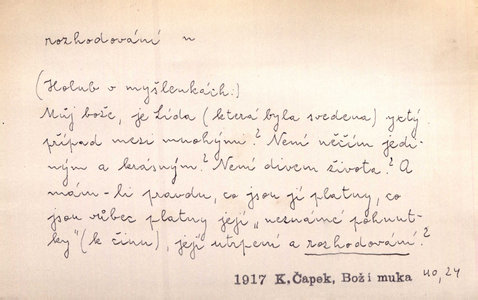 rozhodování n
(Holub v myšlenkách:)
Můj bože, je Lída (která byla svedena) x-tý
případ mezi mnohými? Není něčím jedi-
ným a krásným? Není divem života? A
mám-li pravdu, co jsou jí platny, co
jsou vůbec platny její „neznámé pohnut-
ky" (k činu), její utrpení a rozhodování?
1917 K.Čapek, Boží muka 40,24